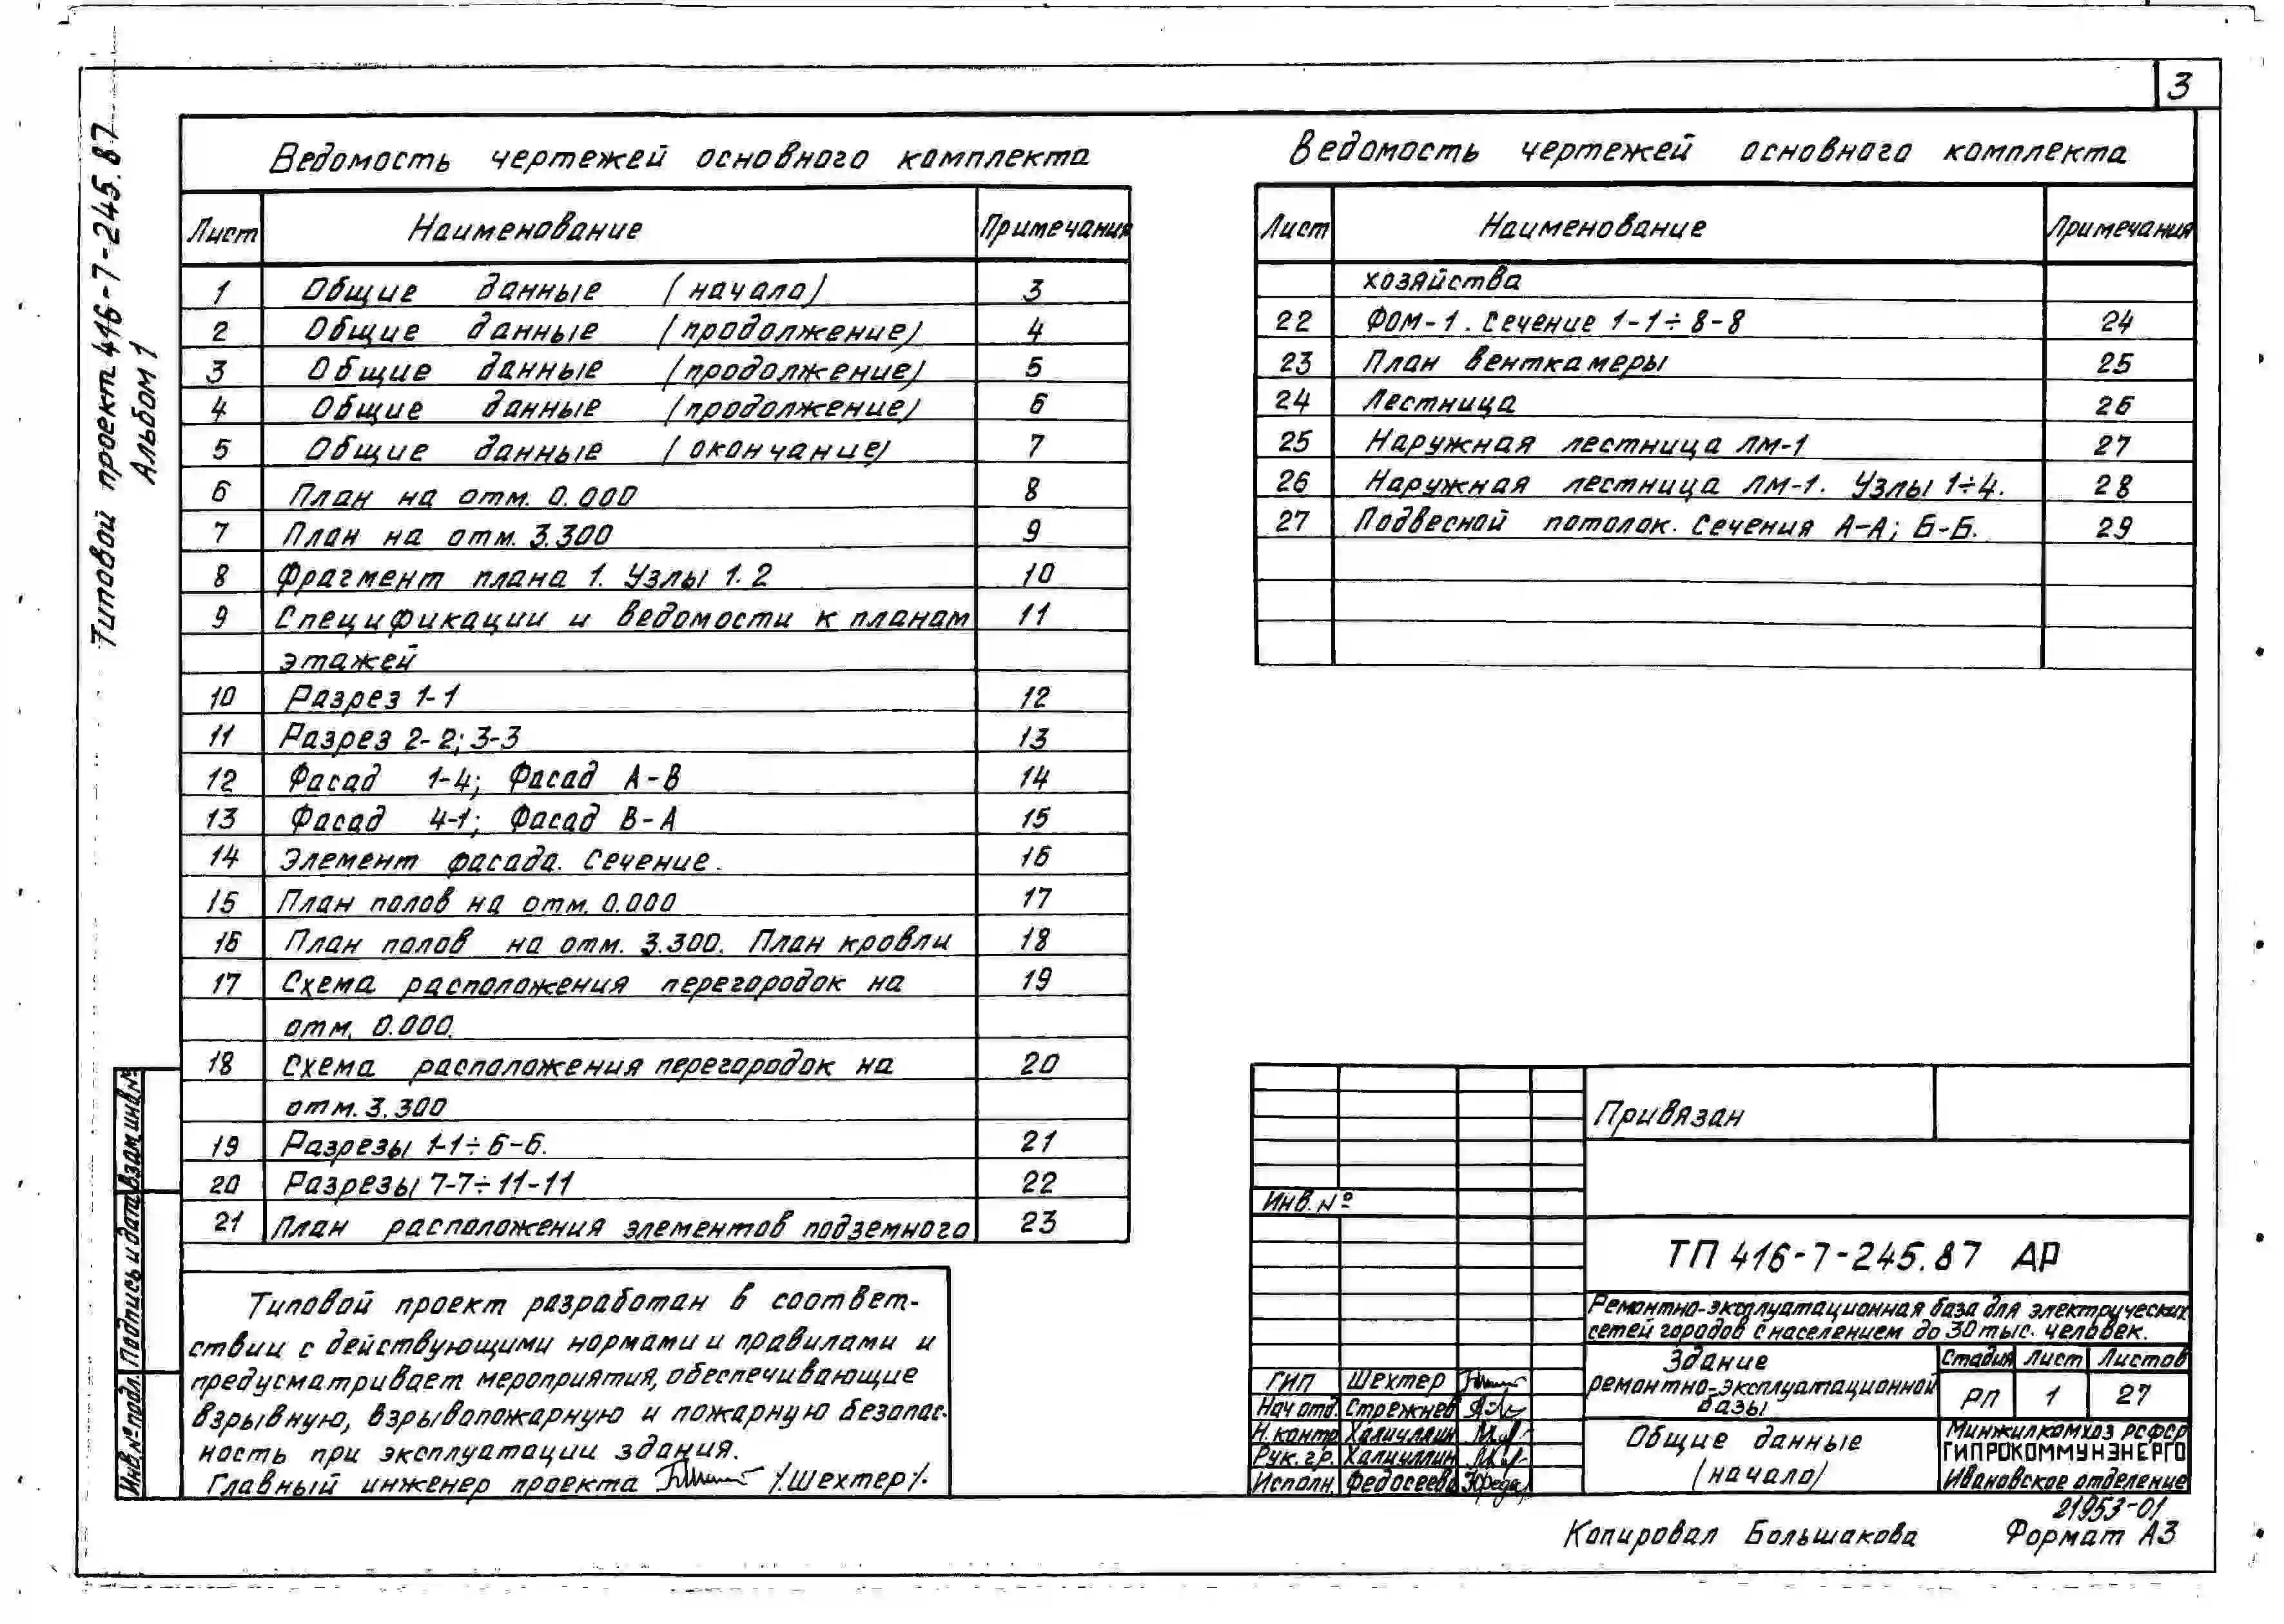 3
Типовой проект 416-7-245.87
Альбом 1
Ведомость чертежей основного комплекта
Лист Наименование Примечания
1 Общие данные (начало) 3
2 Общие данные (продолжение) 4
3 Общие данные (продолжение) 5
4 Общие данные (продолжение) 6
5 Общие данные (окончание) 7
6 План на отм. 0.000 8
7 План на отм. 3.300 9
8 Фрагмент плана 1. Узлы 1. 2 10
9 Спецификации и ведомости к планам 11
этажей
10 Разрез 1-1 12
11 Разрез 2-2; 3-3 13
12 Фасад 1-4; Фасад А-В 14
13 Фасад 4-1; Фасад В-А 15
14 Элемент фасада. Сечение. 16
15 План полов на отм. 0.000 17
16 План полов на отм. 3.300. План кровли 18
17 Схема расположения перегородок на 19
отм. 0.000.
18 Схема расположения перегородок на 20
отм. 3.300
19 Разрезы 1-1÷6-6. 21
20 Разрезы 7-7÷11-11 22
21 План расположения элементов подземного 23
Типовой проект разработан в соответ-
ствии с действующими нормами и правилами и
предусматривает мероприятия, обеспечивающие
взрывную, взрывопожарную и пожарную безопас-
ность при эксплуатации здания.
Главный инженер проекта /Шехтер/.
Ведомость чертежей основного комплекта
Лист Наименование Примечания
хозяйства
22 ФОМ-1. Сечение 1-1÷8-8 24
23 План венткамеры 25
24 Лестница 26
25 Наружная лестница ЛМ-1 27
26 Наружная лестница ЛМ-1. Узлы 1÷4. 28
27 Подвесной потолок. Сечения А-А; Б-Б. 29
Привязан
Инв. №
ТП 416-7-245.87 АР
Ремонтно-эксплуатационная база для электрических
сетей городов с населением до 30 тыс. человек.
Здание
ремонтно-эксплуатационной
базы
Стадия Лист Листов
РП 1 27
ГИП Шехтер
Нач отд. Стрежнев
Н. контр Халиуллин
Рук. гр. Халиуллин
Исполн. Федосеева
Общие данные
(начало)
Минжилкомхоз РСФСР
ГИПРОКОММУНЭНЕРГО
Ивановское отделение
21953-01
Копировал Большакова Формат А3
Взам инв №
Подпись и дата
Инв. № подл.